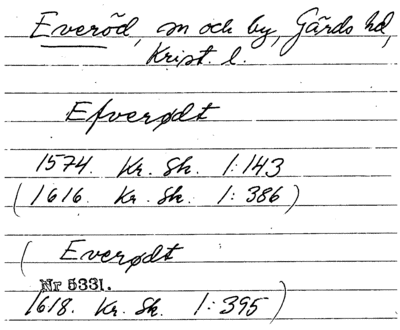 Everöd, sn och by, Gärds hd,
Krist. l.
Efverødt
1574. Kr. Sk. 1:143
(1616. Kr. Sk. 1:386)
(Everødt
Nr 5331.
1618. Kr. Sk. 1:395)